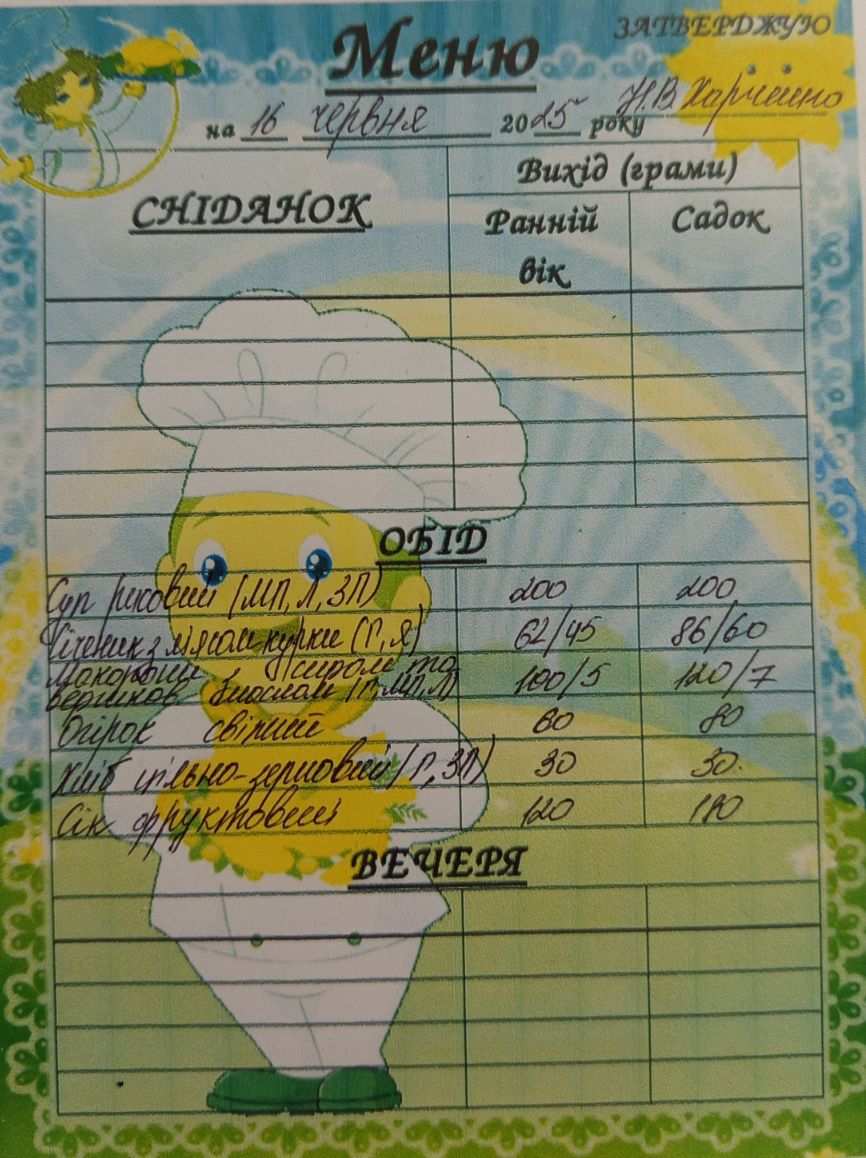 ЗАТВЕРДЖУЮ
Меню
Н.В Харченко
на 16 червня 2025 року
СНІДАНОК
Вихід (грами)
Ранній вік
Садок
ОБІД
Суп рисовий (МП, Л, ЗП) 200 200
Січеник з м'ясом курки (Г, Я) 62/45 86/60
Макаронні сиром та
вермішев маслом (Г, МП, Л) 100/5 120/7
Огірок свіжий 60 80
Хліб цільно-зерновий (Г, ЗП) 30 30
Сік фруктовий 120 180
ВЕЧЕРЯ